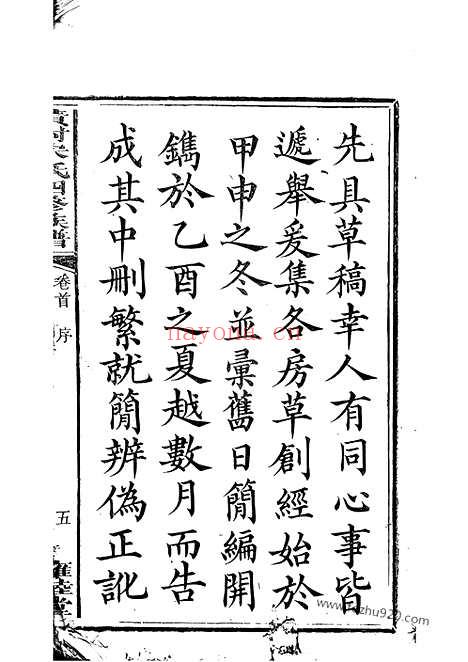 先具草稿幸人有同心事皆
遞舉爰集各房草創經始於
甲申之冬並彙舊日簡編開
鐫於乙酉之夏越數月而告
成其中刪繁就簡辨偽正訛
氏四修族譜
卷首
序
五
堂
nayona.cn
www.zhu920.com